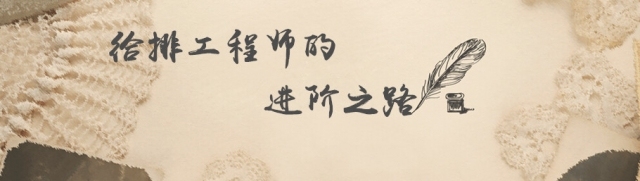 给排工程师的
进阶之路